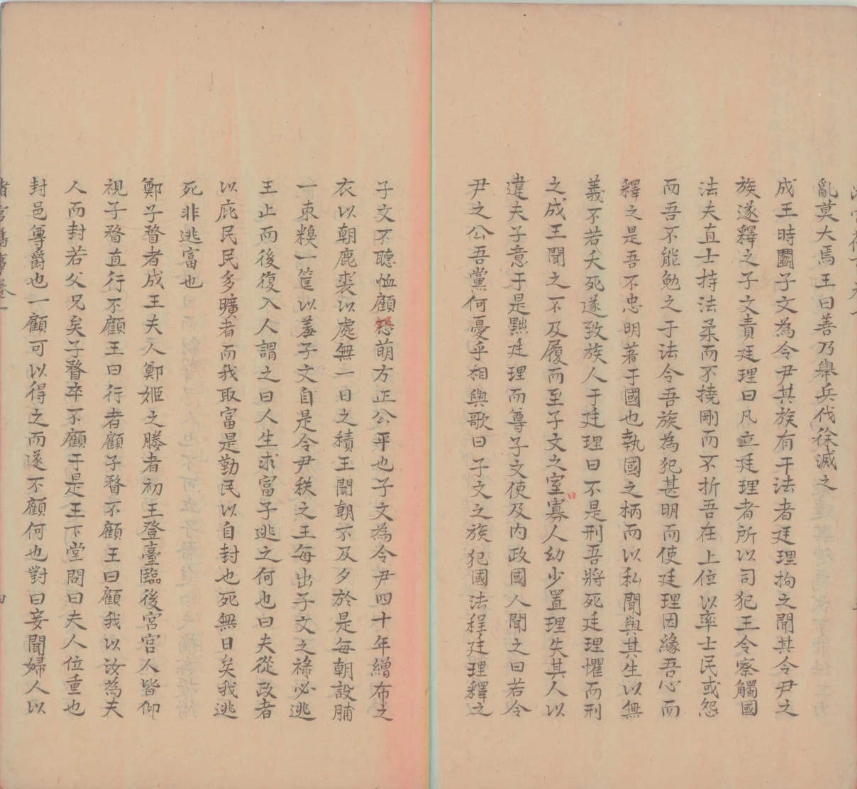 亂莫大焉王曰善乃舉兵伐徐滅之
成王時鬬子文為令尹其族有干法者廷理拘之聞其令尹之
族遂釋之子文責廷理曰凡立廷理者所以司犯王令察觸國
法夫直士持法柔而不撓剛而不折吾在上位以率士民或怨
而吾不能勉之于法令吾族為犯甚明而使廷理因緣吾心而
釋之是吾不忠明著于國也執國之柄而以私聞與其生以無
義不若夭死遂致族人于廷理曰不是刑吾將死廷理懼而刑
之成王聞之不及履而至子文之室寡人幼少置理失其人以
違夫子意于是黜廷理而尊子文使及内政國人聞之曰若令
尹之公吾黨何憂乎相與歌曰子文之族犯國法程廷理釋之
子文不聽恤顧怨萌方正公平也子文為令尹四十年繒布之
衣以朝鹿裘以處無一日之積王聞朝不及夕於是每朝設脯
一束糗一筐以羞子文自是令尹秩之王每出子文之祿必逃
王止而後復入人謂之曰人生求富子逃之何也曰夫從政者
以庇民民多曠者而我取富是勤民以自封也死無日矣我逃
死非逃富也
鄭子瞀者成王夫人鄭姬之媵者初王登臺臨後宮宮人皆仰
視子瞀直行不顧王曰行者顧子瞀不顧王曰顧我以汝為夫
人而封若父兄矣子瞀卒不顧于是王下堂問曰夫人位重也
封邑尊爵也一顧可以得之而遂不顧何也對曰妾聞婦人以